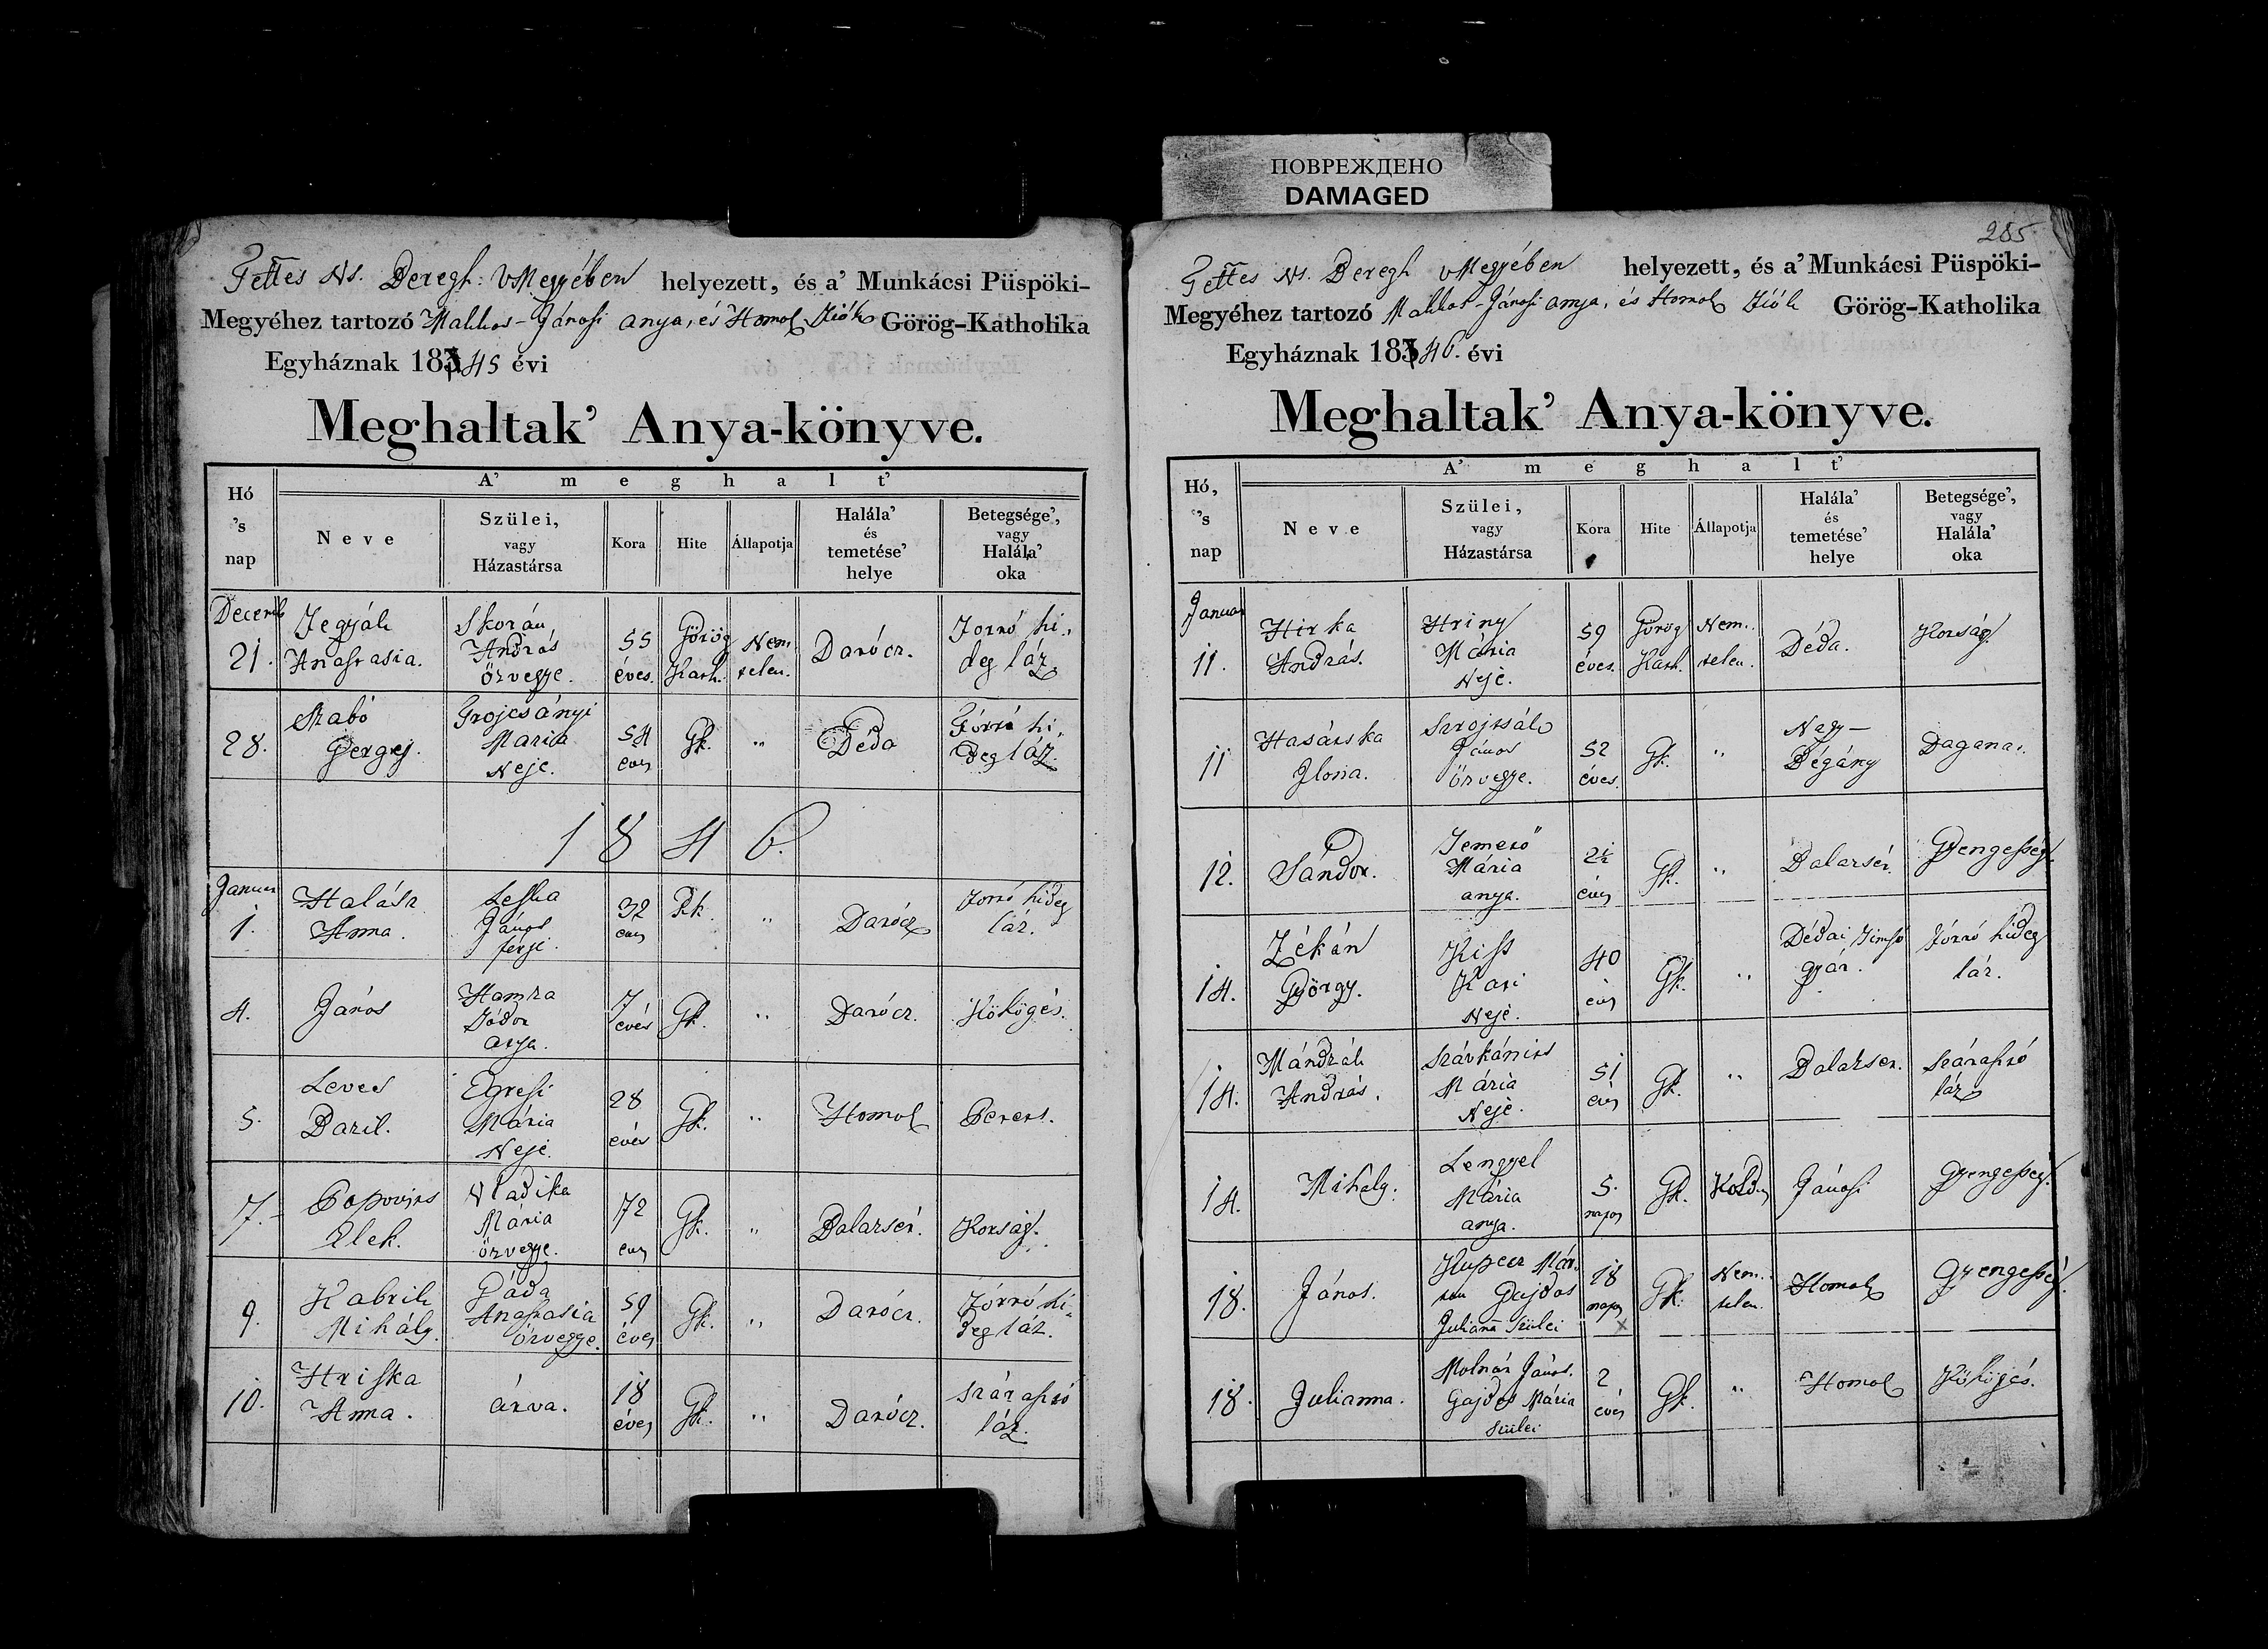 ПОВРЕЖДЕНО
DAMAGED
Tettes Ns. Deregh: VMegyében helyezett, és a' Munkácsi Püspöki-
Megyéhez tartozó Makkos-Jánosi anya, és Homok Fiók Görög-Katholika
Egyháznak 18345 évi
Meghaltak' Anya-könyve.
A' meghalt'
Hó
's
nap
Neve
Szülei,
vagy
Házastársa
Kora
Hite
Állapotja
Halála'
és
temetése'
helye
Betegsége',
vagy
Halála'
oka
Decemb
21.
Anastasia.
Skorán
András
özvegye.
55
éves.
Görög
Kath.
Nem
telen.
Darócz.
Forró hi-
deg láz
28.
Szabó
Gergej.
Maria
Neje.
54
éves
Gk.
"
Déda
Forró hi-
deg láz.
1846.
Januar
1.
Halász
Anna.
Leska
János
férje.
32
éves
Rk.
"
Darócz
Forró hideg
láz.
4.
János
Hamza
Fódor
atyja.
7
éves
Gk.
"
Darócz.
Kököges.
5.
Leves
Bazil.
Egresi
Mária
Neje.
28
éves
Gk.
"
Homok
7.
Popovits
Elek.
Vladika
Mária
özvegye.
72
éves
Gk.
"
Balazsér.
Korság.
9.
Kabrik
Mihály.
Anastasia
özvegye.
59
éves
Gk.
"
Darócz.
Forró hi-
deg láz.
10.
Hriska
Anna.
árva.
18
éves
Gk.
"
Darócz.
Száraszó
láz.
285
Tettes Ns. Beregh VMegyében helyezett, és a' Munkácsi Püspöki-
Megyéhez tartozó Makkos-Jánosi anya, és Homok Fiók Görög-Katholika
Egyháznak 18346. évi
Meghaltak' Anya-könyve.
A' meghalt'
Hó,
's
nap
Neve
Szülei,
vagy
Házastársa
Kora
Hite
Állapotja
Halála'
és
temetése'
helye
Betegsége',
vagy
Halála'
oka
Januar
11.
Hirka
András.
Hriny
Mária
Neje.
59
éves.
Görög
Kath.
Nem-
telen.
Déda.
Korság.
11
Ilona.
János
özvegye.
52
éves.
Gk.
"
Nagy-
Bégány
Daganat.
12.
Sándor.
Temető
Mária
anya.
2½
éves
Gk.
"
Balazsér.
Gyengeség.
14.
Zékán
György.
Kiss
Kati
Neje.
40
éves
Gk.
"
Dédai Timsó
gyár.
Forró hideg
láz.
14.
Mándzák
András.
Mária
Neje.
51
éves
Gk.
"
Balazser.
Száraszó
láz
14.
Mihály.
Lengyel
Mária
anya.
5.
napos
Gk.
Kóldus
Jánosi
Gyengeség.
18.
János.
Kupcza Már-
ton Gajdos
Julianna szülei
18
napos
x
Gk.
Nem-
telen.
Homok
Gyengeség.
18.
Julianna.
Molnár János.
Gajdos Mária
szülei
2
éves
Gk.
"
Homok
Kököges.